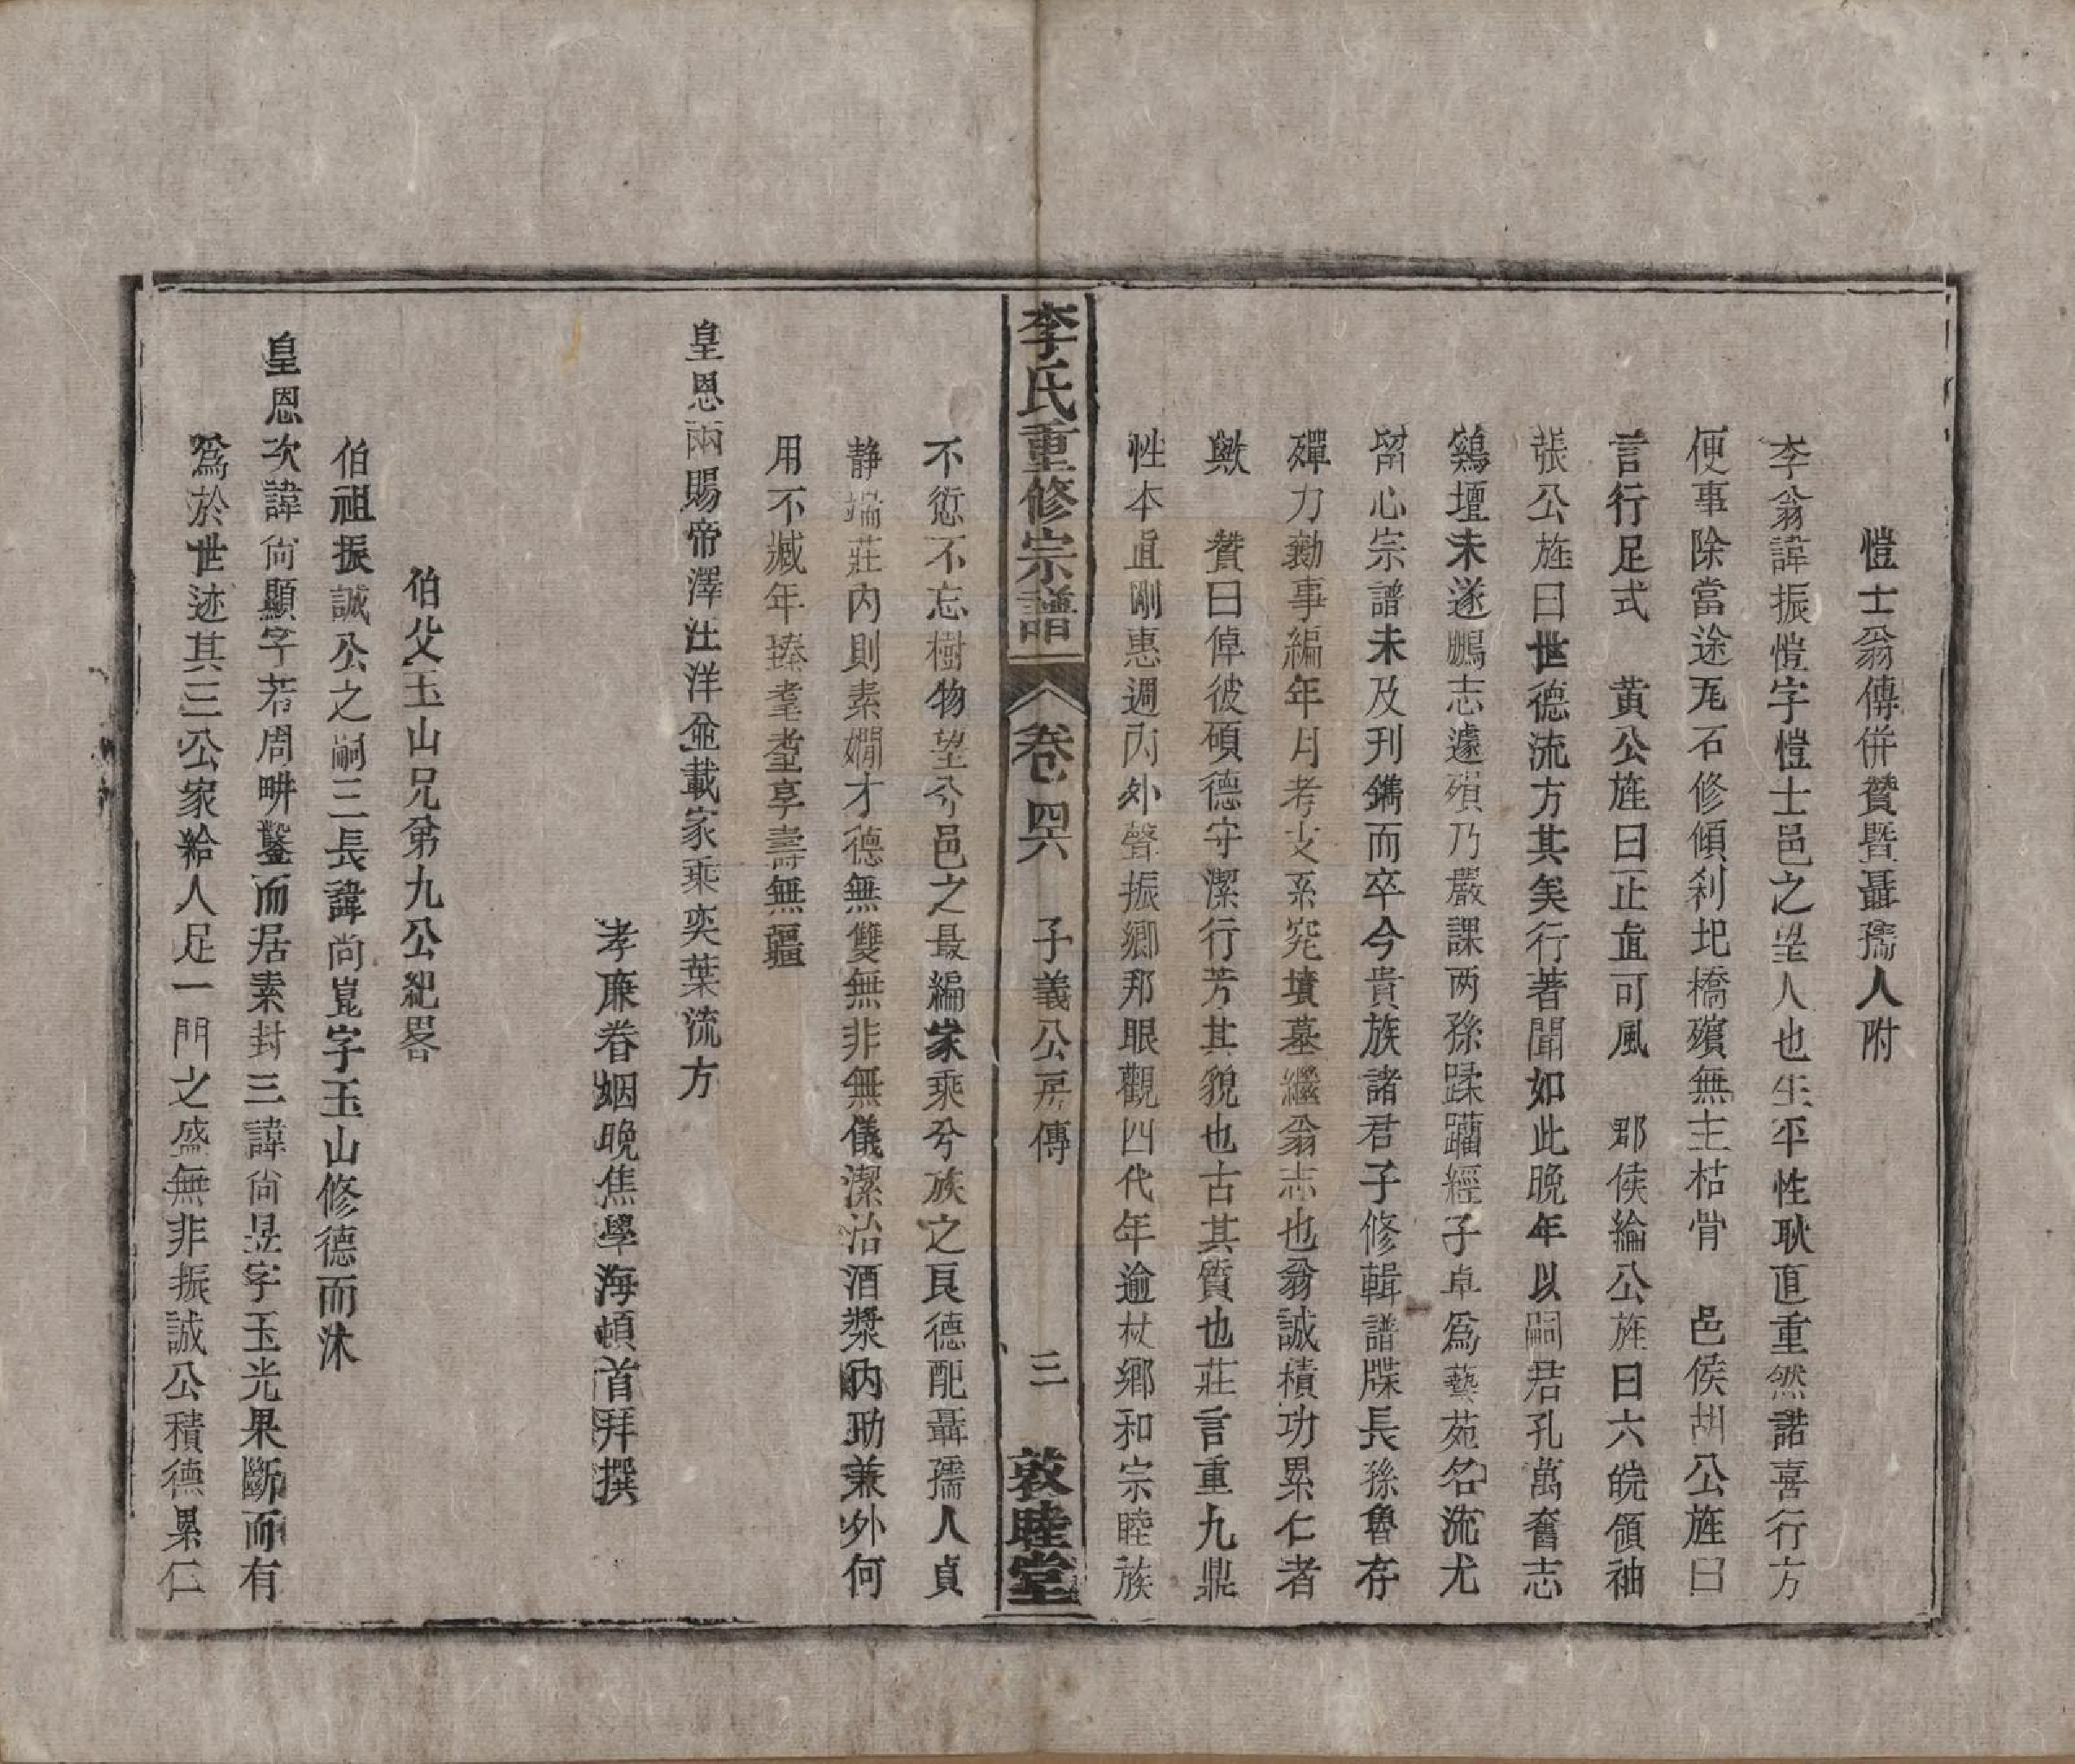 愷士翁傳併贊暨聶孺人附
李翁諱振愷字愷士邑之望人也生平性耿直重然諾喜行方
便事除當途瓦石修傾刹圯橋殯無主枯骨　邑侯胡公旌曰
言行足式　黄公旌曰正直可風　郡侯綸公旌曰六皖領袖
張公旌曰世德流方其矣行著聞如此晚年以嗣君孔萬奮志
鷄壇未遂鵬志遽殞乃嚴課两孫蹂躪經子卓爲藝苑名流尤
留心宗譜未及刊鐫而卒今貴族諸君子修輯譜牒長孫魯存
殫力勷事編年月考支系窕墳墓繼翁志也翁誠積功累仁者
歟　贊曰倬彼碩德守潔行芳其貌也古其質也莊言重九鼎
性本直剛惠週内外聲振鄉邦眼觀四代年逾杖鄉和宗睦族
李氏重修宗譜　卷四六　子義公房傳　三　敦睦堂
不愆不忘樹物望兮邑之最編家乘兮族之良德配聶孺人貞
静端莊内則素嫺才德無雙無非無儀潔治酒漿内助兼外何
用不臧年臻耄耋享壽無疆
皇恩兩賜帝澤汪洋僉載家乘奕葉流方
孝廉眷姻晚焦學海頓首拜撰
伯父玉山兄弟九公紀畧
伯祖振誠公之嗣三長諱尚崑字玉山修德而沐
皇恩次諱尙顯字若周畊鑿而居素封三諱尙昱字玉光果斷而有
爲於世迹其三公家給人足一門之盛無非振誠公積德累仁